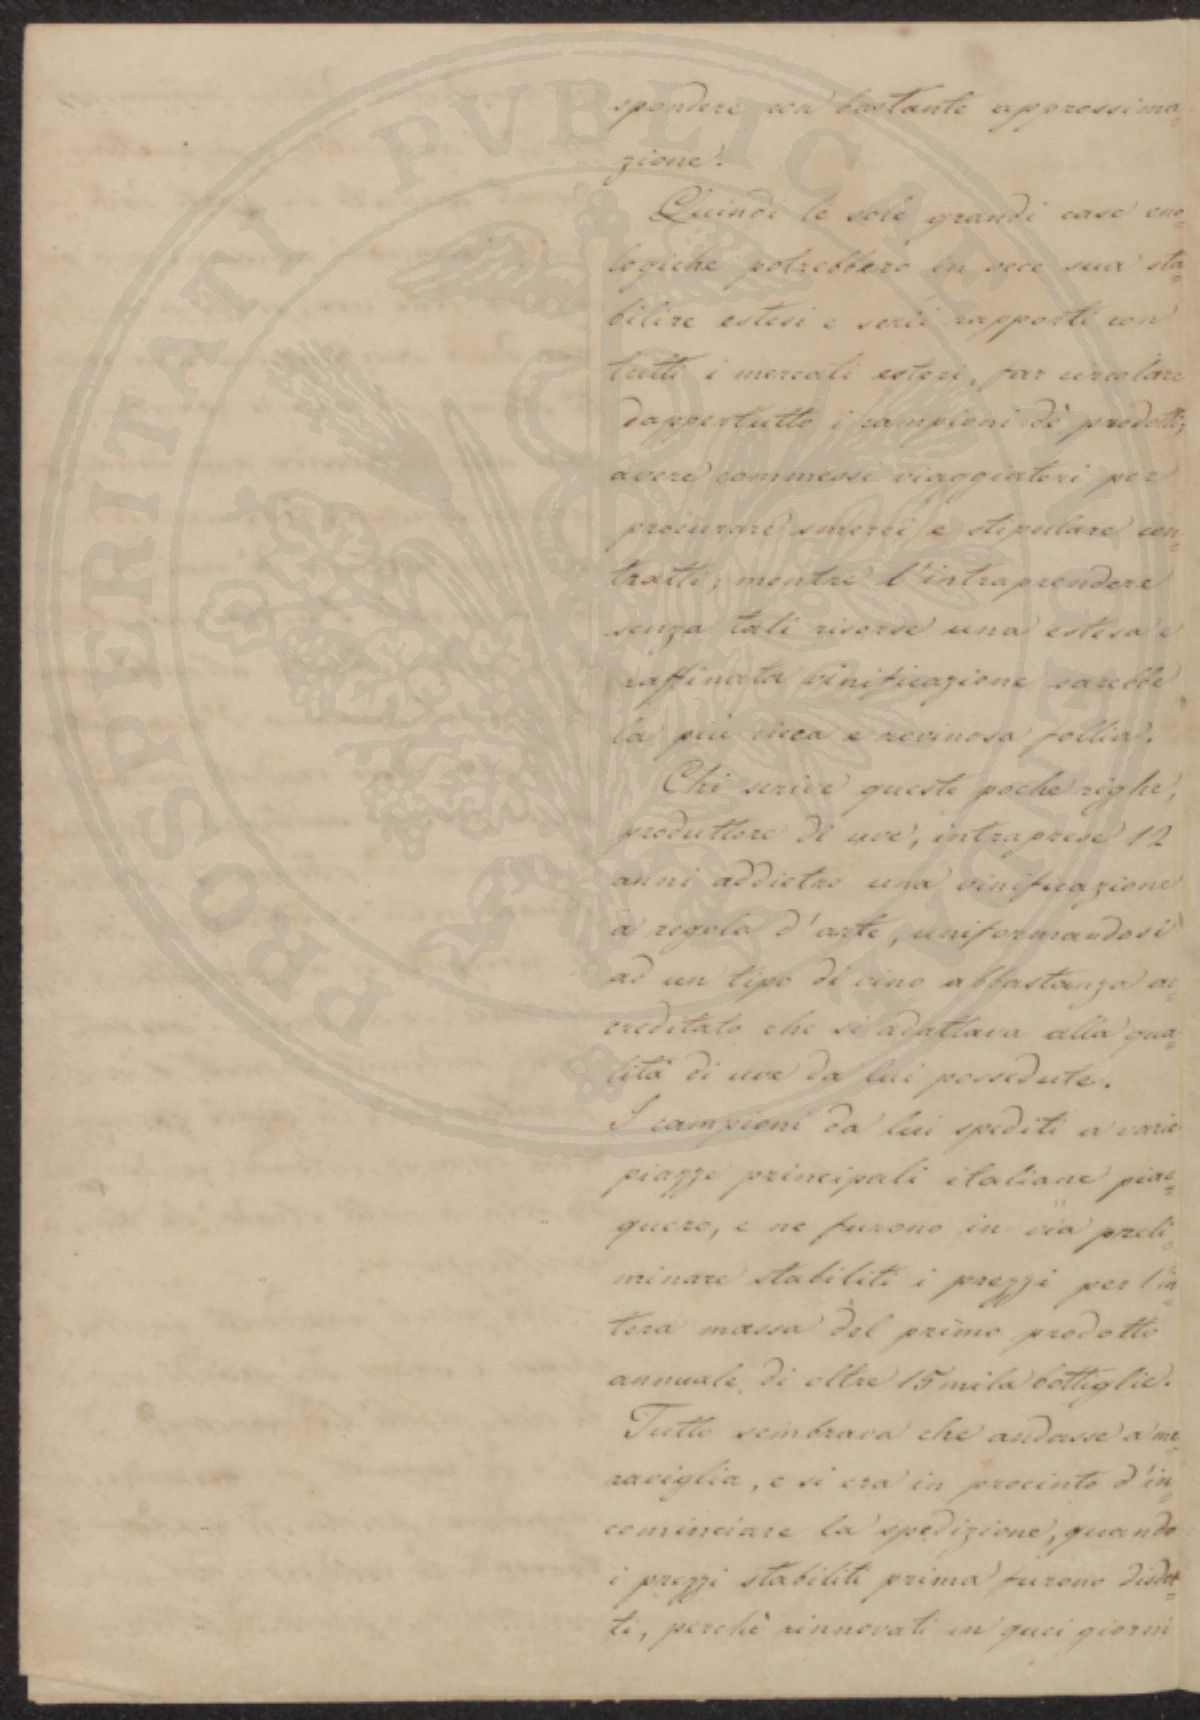 spondere con bastante approssima=
zione.
Quindi le sole grandi case eno=
logiche potrebbero in vece sua sta=
bilire estesi e serii rapporti con
tutti i mercati esteri, far circolare
dappertutto i campioni di prodotti,
avere commessi viaggiatori per
procurare smerci e stipulare con=
tratti; mentre l'intraprendere
senza tali risorse una estesa e
raffinata vinificazione sarebbe
la più cieca e rovinosa follia.
Chi scrive queste poche righe,
produttore di uve, intraprese 12
anni addietro una vinificazione
a regola d'arte, uniformandosi
ad un tipo di vino abbastanza ac=
creditato che si adattava alla qua=
lità di uve da lui possedute.
I campioni da lui spediti a varie
piazze principali italiane piac=
quero, e ne furono in via preli=
minare stabiliti i prezzi per l'in=
tera massa del primo prodotto
annuale di oltre 15 mila bottiglie.
Tutto sembrava che andasse a me=
raviglia, e si era in procinto d'in=
cominciare la spedizione, quando
i prezzi stabiliti prima furono disdet=
ti, perchè rinnovati in quei giorni
PROSPERITATI PVBLICAE